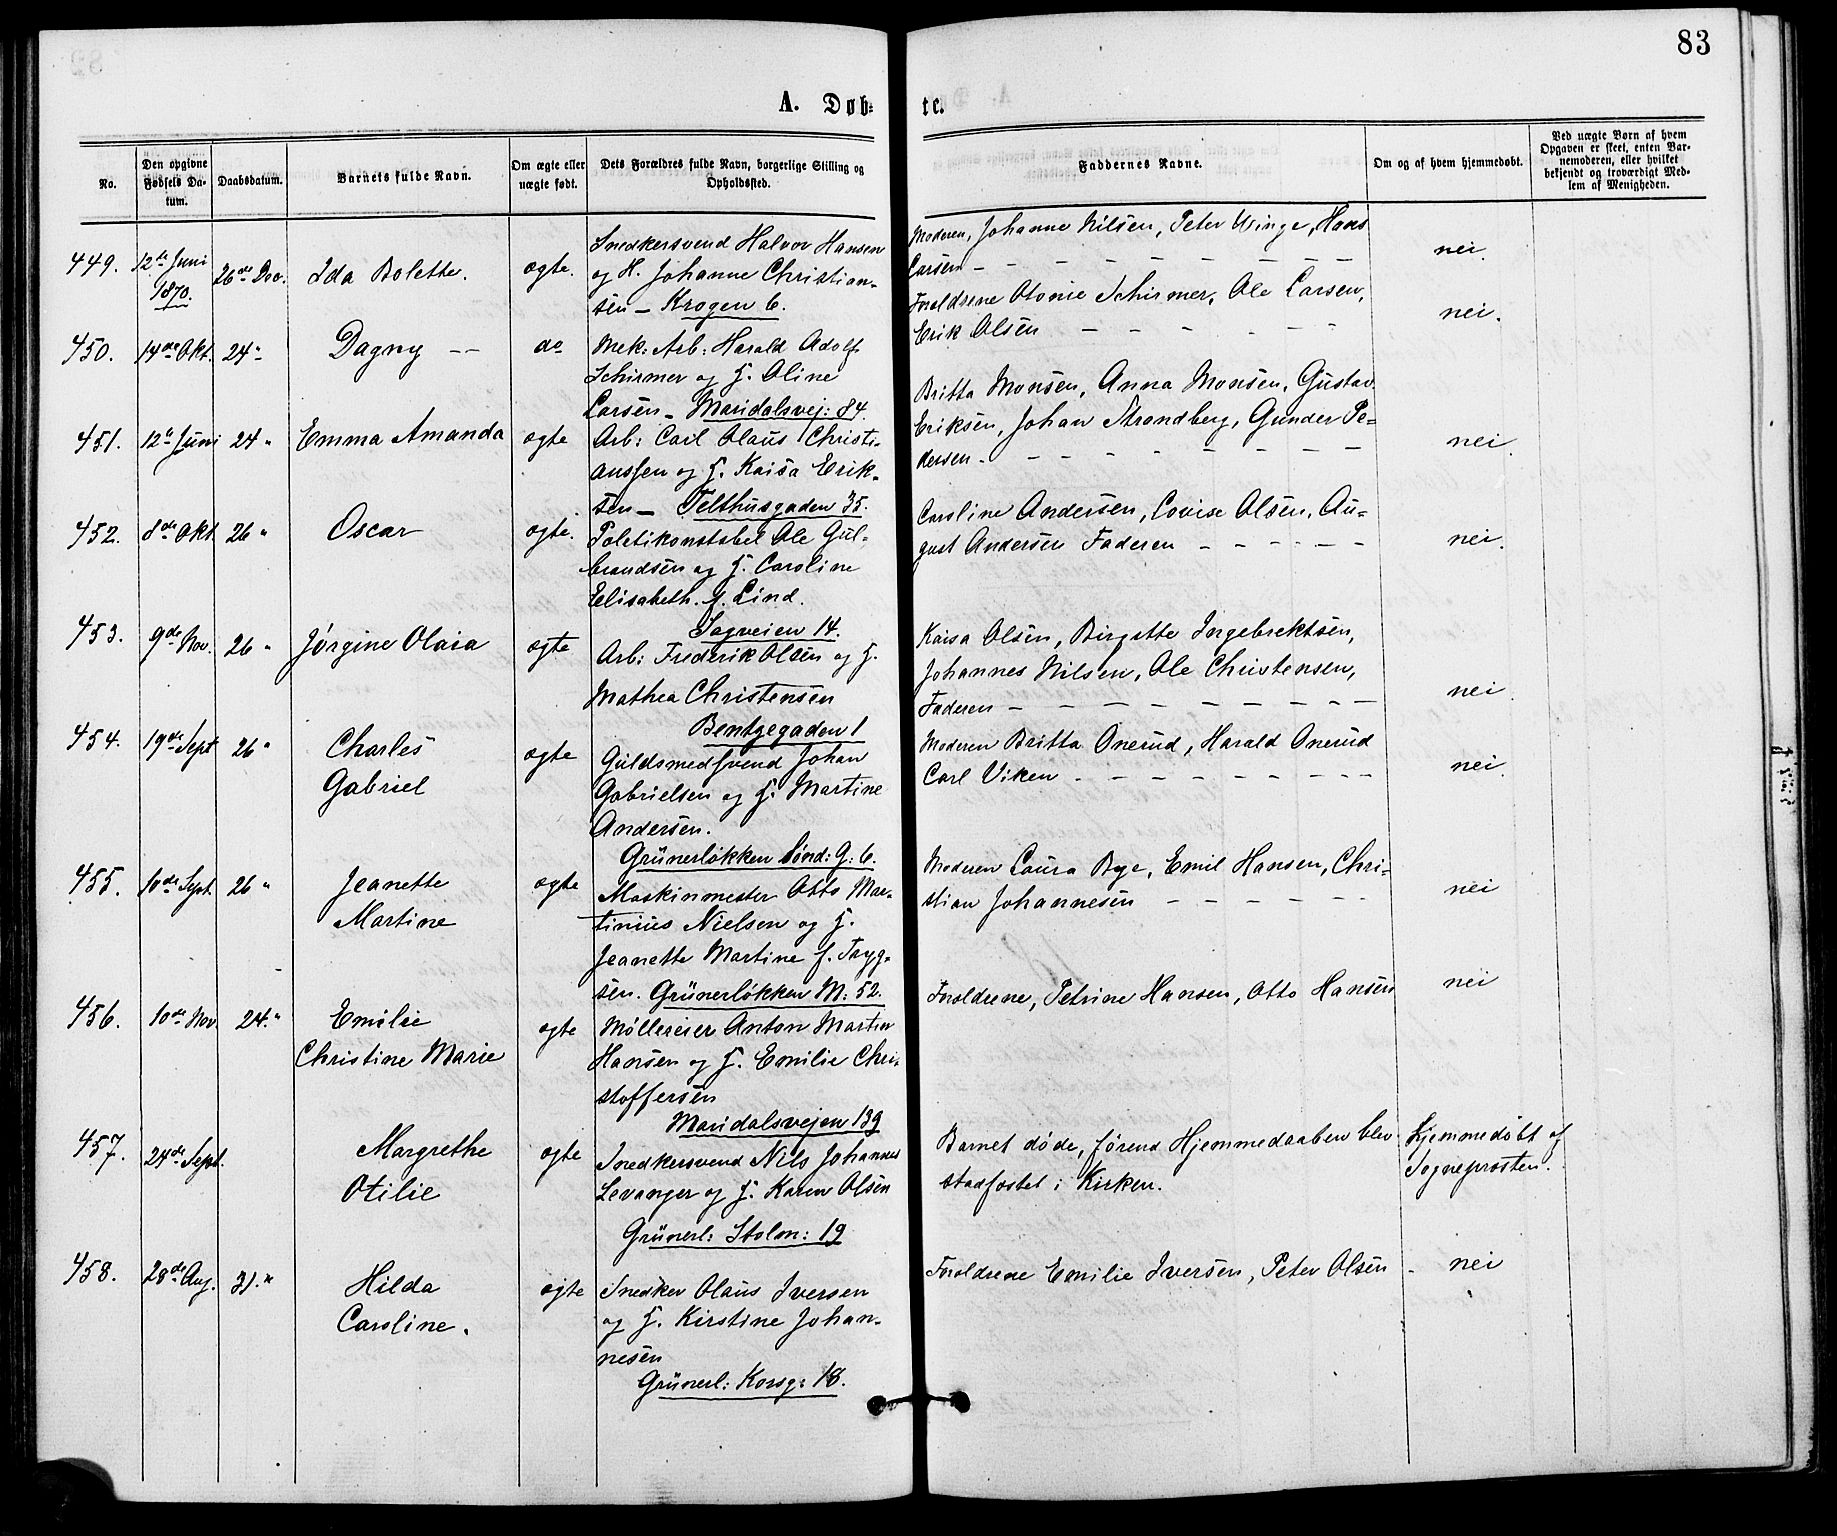 83
A. Døb-
te.
No.
Den opgivne Fødsels Da-
tum.
Daabsdatum.
Barnets fulde Navn.
Om ægte eller
uægte født.
Dets Forældres fulde Navn, borgerlige Stilling og
Opholdssted.
Faddernes Navne.
Om og af hvem hjemmedøbt.
Ved uægte Børn af hvem
Opgaven er skeet, enten Bar-
nemoderen, eller hvilket
bekjendt og troværdigt Med-
lem af Menigheden.
449.
12te Juni
1870.
26de Dec.
Ida Bolette.
ægte.
Snedkersvend Halvor Hansen
og H. Johanne Christian-
sen – Krogen 6.
Moderen, Johanne Nilsen, Peter Winge, Hans
Larsen
nei.
450.
14de Okt.
24 "
Dagny
do
Mek: Arb: Harald Adolf
Schirmer og H. Oline
Larsen – Maridalsvej: 84.
Forældrene Schirmer, Ole Larsen,
Erik Olsen
nei.
451.
12te Juni
24 "
Emma Amanda
ægte
Arb: Carl Olaus Christi-
anssen og H. Kaisa Erik-
sen – Telthusgaden 35.
Britta Monsen, Anna Monsen, Gustav
Eriksen, Johan Strandberg, Gunder Pe-
dersen
nei.
452.
8de Okt.
26 "
Oscar
ægte.
Politikonstabel Ole Gul-
brandsen og H. Caroline
Elisabeth f. Lind.
Sagveien 14.
Caroline Andersen, Lovise Olsen, Au-
gust Andersen Faderen
nei.
453.
9de Nov.
26 "
Jørgine Olaia
ægte
Arb: Frederik Olsen og H.
Mathea Christensen
Bentzegaden 1
Kaisa Olsen, Birgitte Ingebrektsen,
Johannes Nilsen, Ole Christensen,
Faderen
nei.
454.
19de Sept
26 "
Charles
Gabriel
ægte
Guldsmedsvend Johan
Gabrielsen og H. Martine
Andersen.
Grünerløkken Sønd: G: 6.
Moderen Britta Onerud, Harald Onerud
Carl Viken
nei.
455.
10de Sept.
26 "
Jeanette
Martine
ægte
Maskinmester Otto Mar-
tinius Nielsen og H.
Jeanette Martine f. Tryg-
sen. Grünerløkken M: 52.
Moderen Laura Bye, Emil Hansen, Chri-
stian Johannesen
nei
456.
10de Nov.
24. "
Emilie
Christine Marie
ægte
Mølleeier Anton Martin
Hansen og H. Emilie Chri-
stoffersen
Maridalsvejen 139
Forældrene, Petrine Hansen, Otto Hansen
nei
457.
24de Sept.
Margrethe
Otilie
ægte
Snedkersvend Nils Johannes
Levanger og H. Karen Olsen
Grünerl: Stolm: 19
Barnet døde, førend Hjemmedaaben blev
stadfæstet i Kirken.
Hjemmedøbt af
Sogneprosten.
458.
28de Aug.
31. "
Hilda
Caroline.
ægte
Snedker Olaus Iversen
og H. Kirstine Johan-
nesen
Grünerl: Korsg: 18.
Forældrene Emilie Iversen, Peter Olsen
nei